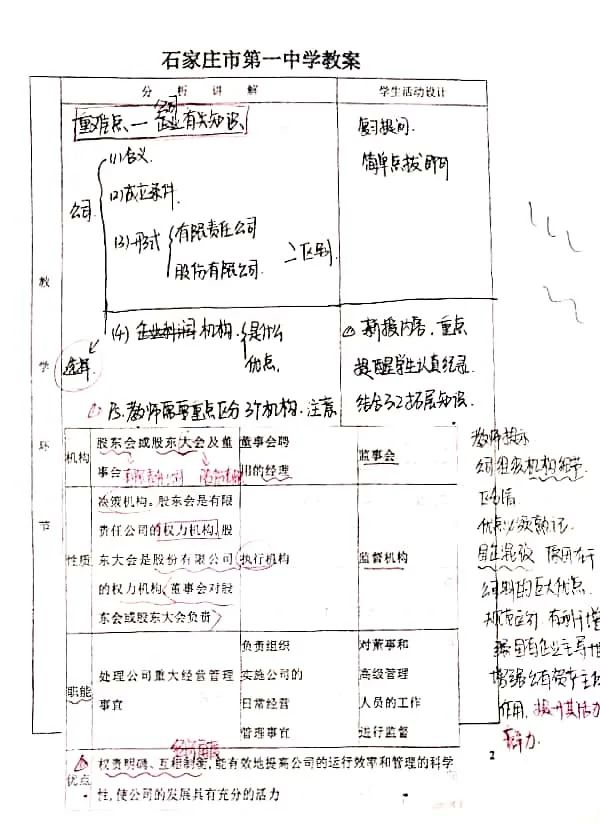 石家庄市第一中学教案
分 析 讲 解
学生活动设计
重难点、一 企业有关知识
公司
复习提问.
简单点拨即可
公司
(1)含义.
(2)成立条件.
(3)形式
有限责任公司
股份有限公司.
区别
教
学
环
节
选择
(4) 企业利润机构.
是什么
优点.
新授内容.重点
提醒学生认真纪录.
PS.教师需要重点区分3个机构.注意
结合32拓展知识.
机构
股东会或股东大会及董
事会
有限责任公司
董事会聘
用的经理
监事会
性质
决策机构。股东会是有限
责任公司的权力机构,股
东大会是股份有限公司
的权力机构,董事会对股
东会或股东大会负责
执行机构
监督机构
职能
处理公司重大经营管理
事宜
负责组织
实施公司的
日常经营
管理事宜
对董事和
高级管理
人员的工作
进行监督
优点
权责明确、互相制衡,能有效地提高公司的运行效率和管理的科学
性,使公司的发展具有充分的活力
教师提示
公司组织机构
优点必须熟记.
公司制的巨大优点.
规范区分,有利于增
强国有企业主导地
增强公有资本主
作用.提升其活力
2